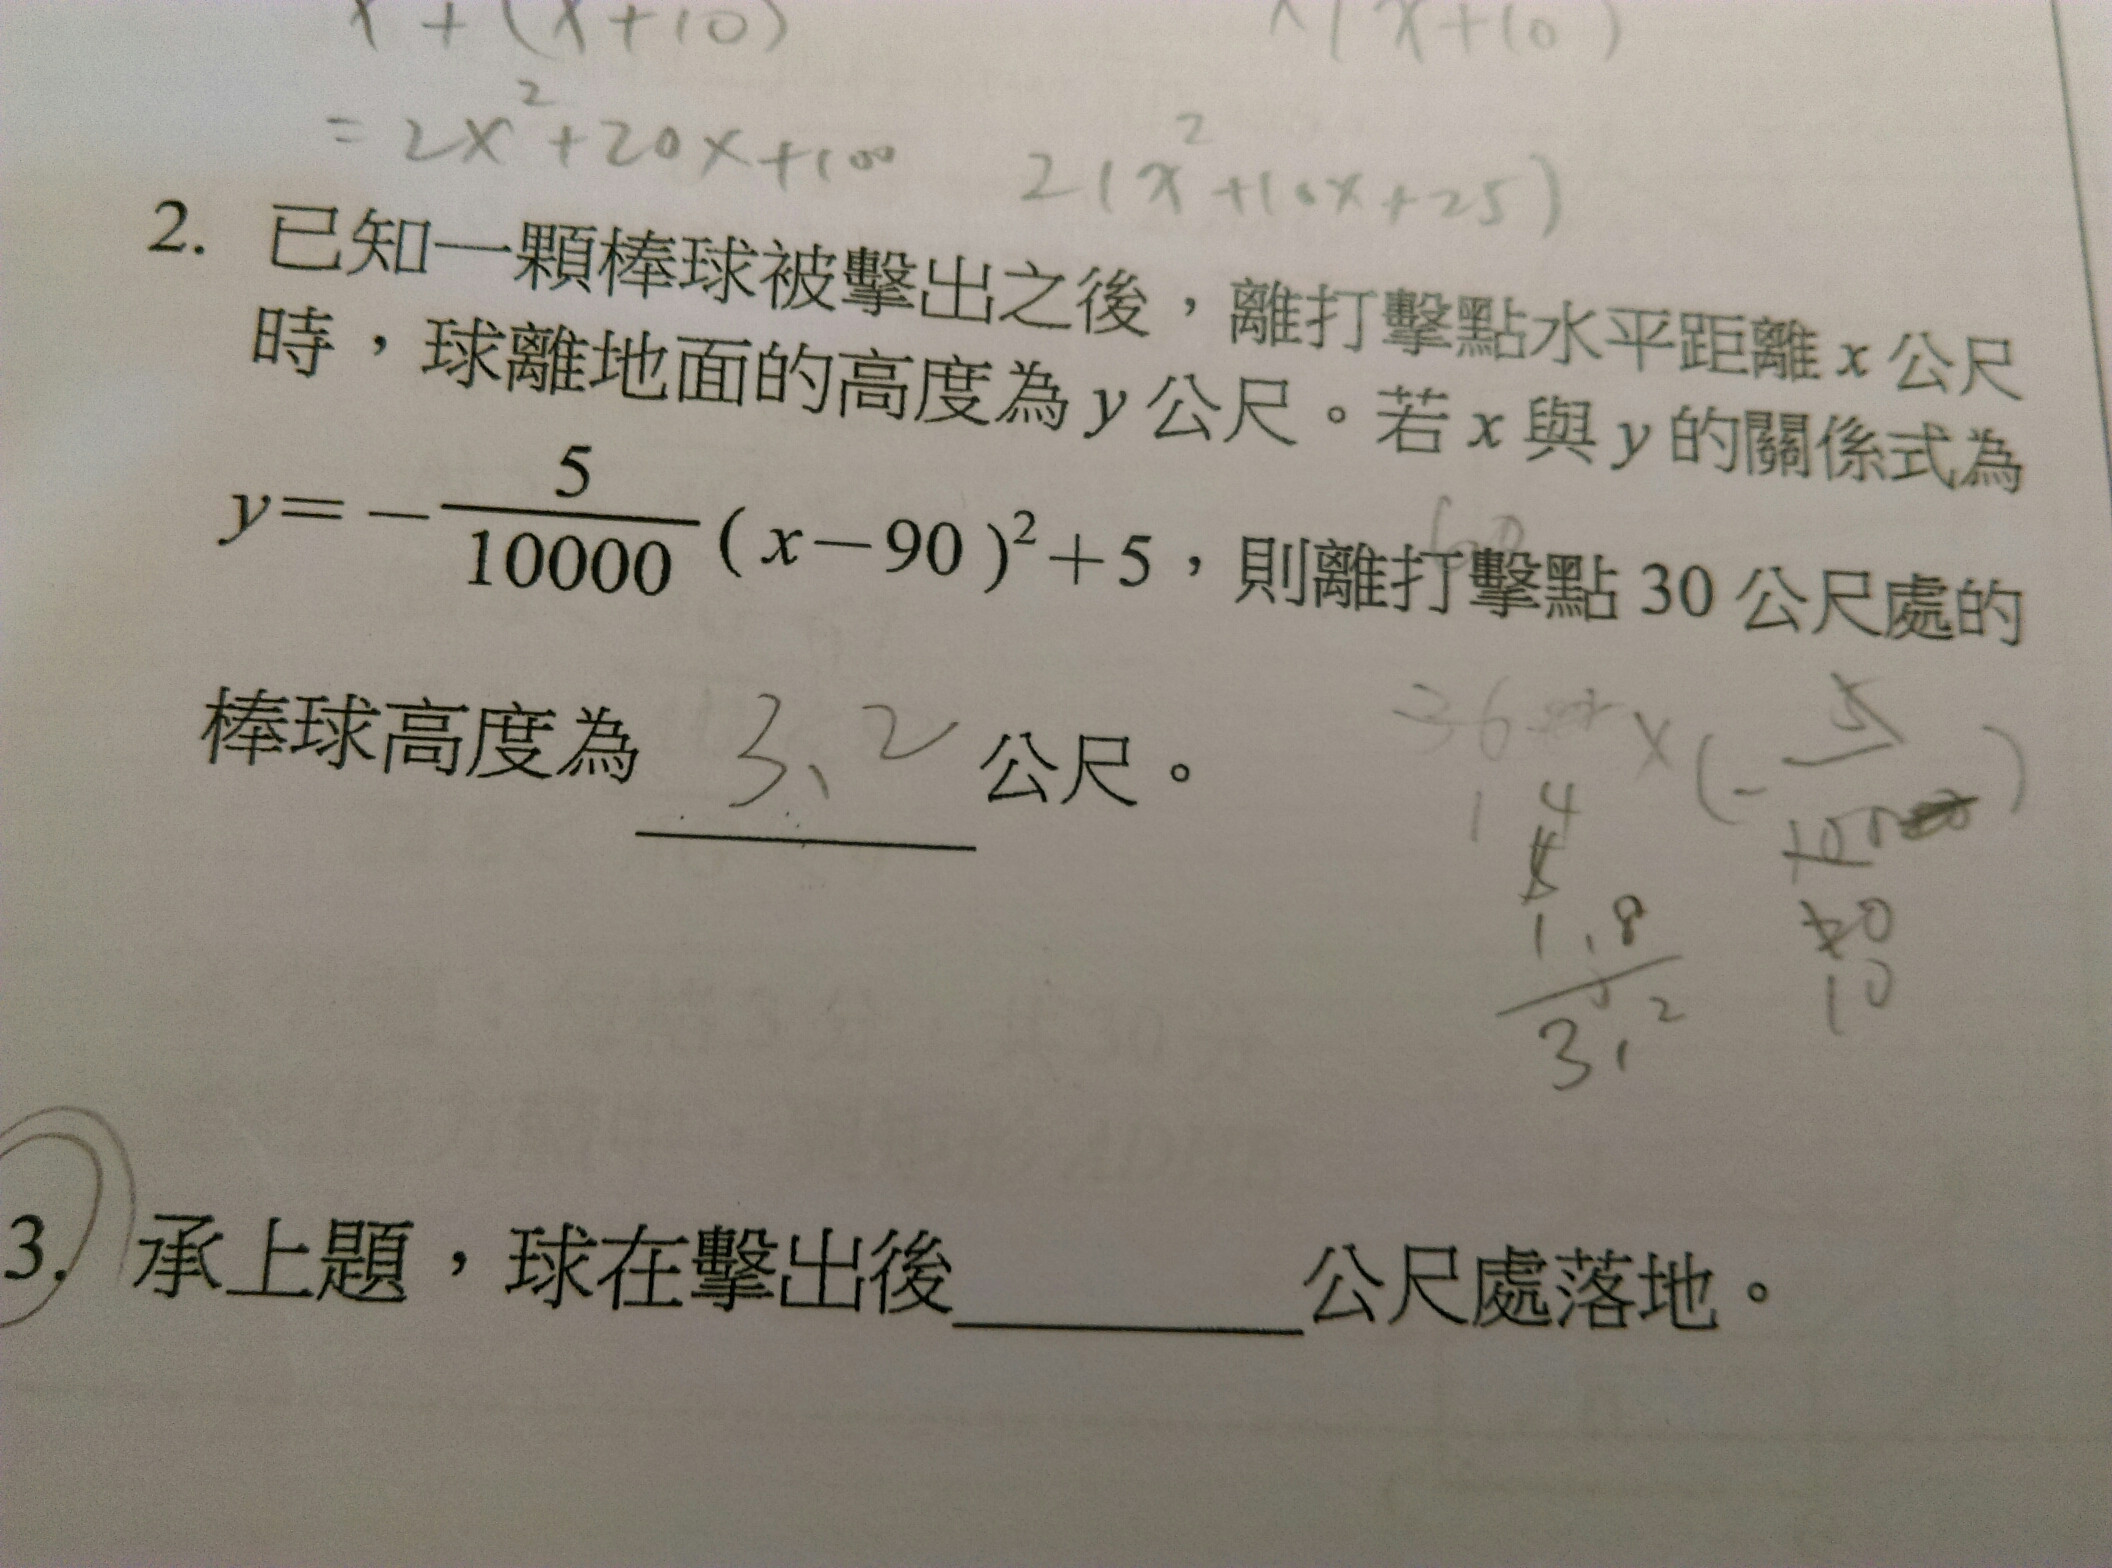 x + (x+10) x(x+10)
= 2x²+20x+100 2(x²+10x+25)
2. 已知一顆棒球被擊出之後，離打擊點水平距離 x 公尺
時，球離地面的高度為 y 公尺。若 x 與 y 的關係式為
60
y=－5/10000 (x－90)²＋5，則離打擊點 30 公尺處的
棒球高度為 3.2 公尺。
36 x (- 5
1 4
1.8
10
3.2
3. 承上題，球在擊出後______公尺處落地。